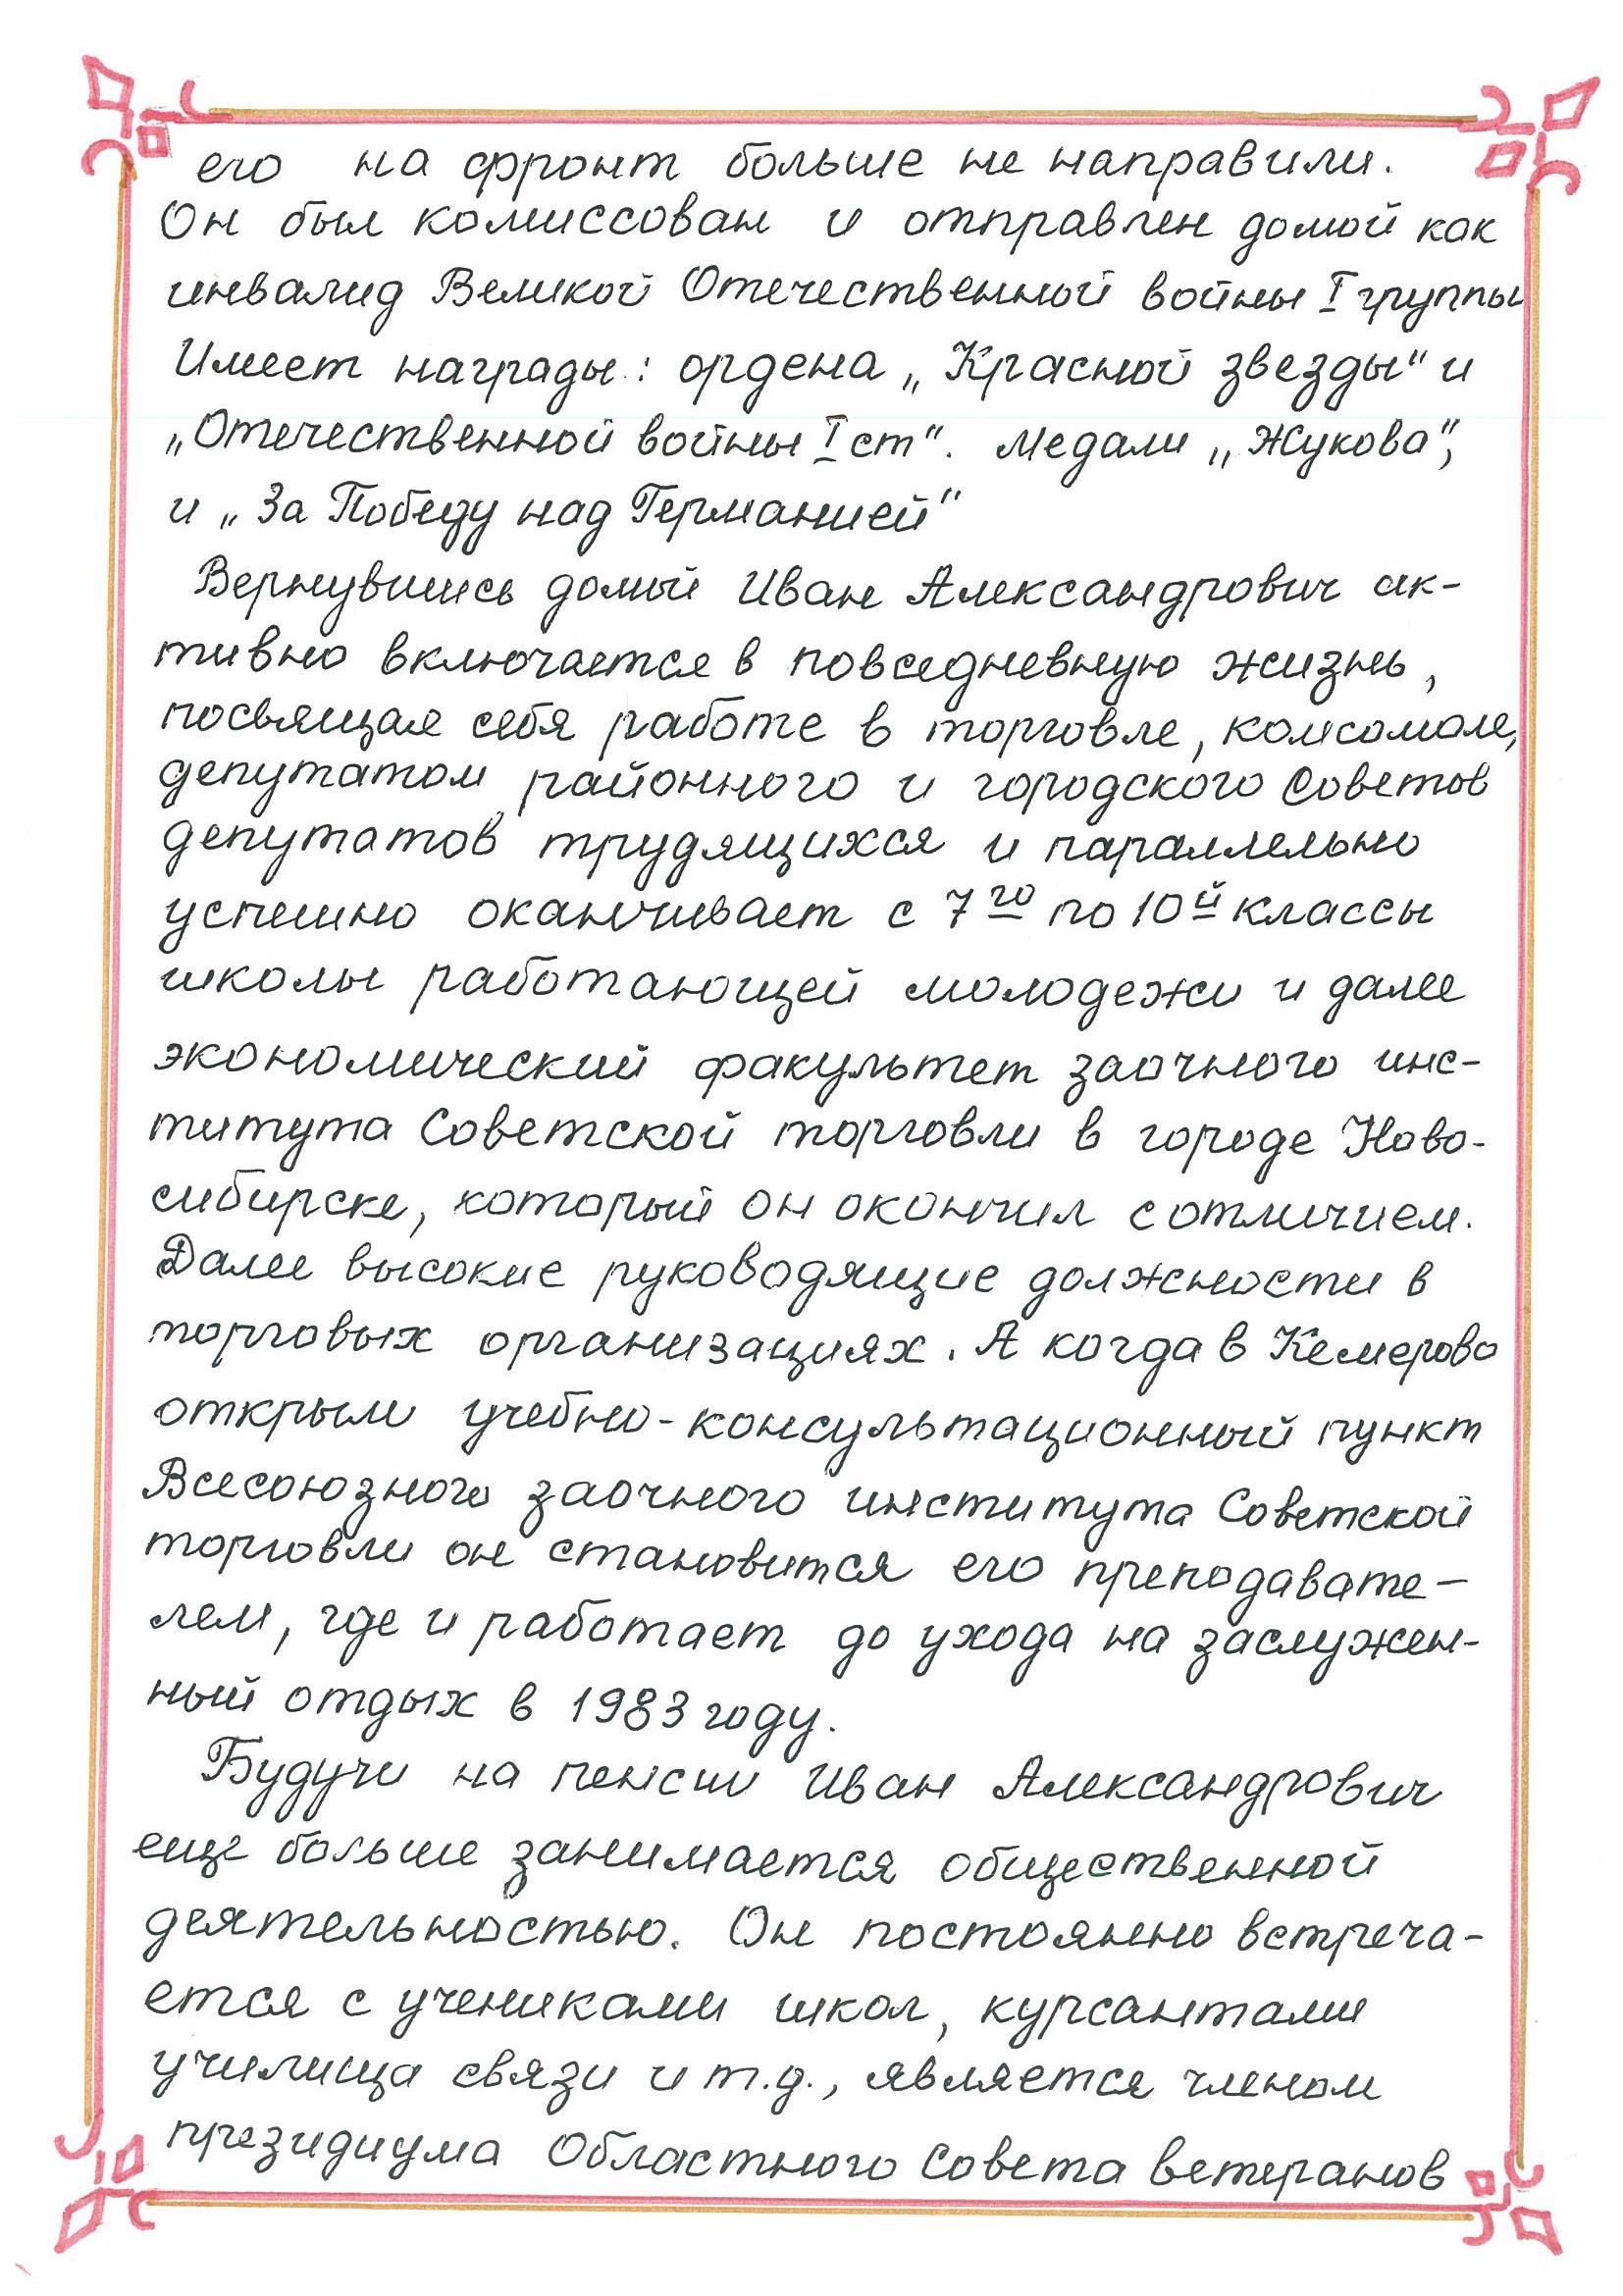 его на фронт больше не направили.
Он был комиссован и отправлен домой как
инвалид Великой Отечественной войны I группы
Имеет награды: ордена „Красной звезды" и
„Отечественной войны I ст". Медали „Жукова",
и „За Победу над Германией"
Вернувшись домой Иван Александрович ак-
тивно включается в повседневную жизнь,
посвящая себя работе в торговле, комсомоле,
депутатом районного и городского Советов
депутатов трудящихся и параллельно
успешно оканчивает с 7го по 10й классы
школы работающей молодежи и далее
экономический факультет заочного инс-
титута Советской торговли в городе Ново-
сибирске, который он окончил с отличием.
Далее высокие руководящие должности в
торговых организациях. А когда в Кемерово
открыли учебно-консультационный пункт
Всесоюзного заочного института Советской
торговли он становится его преподавате-
лем, где и работает до ухода на заслужен-
ный отдых в 1983 году.
Будучи на пенсии Иван Александрович
еще больше занимается общественной
деятельностью. Он постоянно встреча-
ется с учениками школ, курсантами
училища связи и т.д., является членом
президиума Областного Совета ветеранов